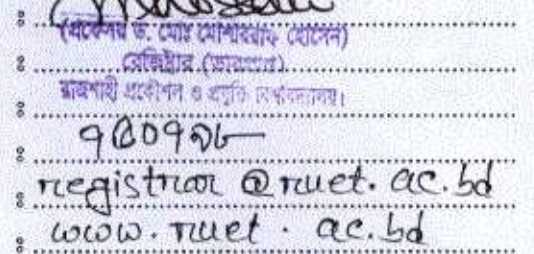 (প্রফেসর ড. মোঃ মোশাররফ হোসেন)
রেজিস্ট্রার (ভারপ্রাপ্ত)
রাজশাহী প্রকৌশল ও প্রযুক্তি বিশ্ববিদ্যালয়।
registrar @ruet. ac.bd
www. ruet . ac.bd